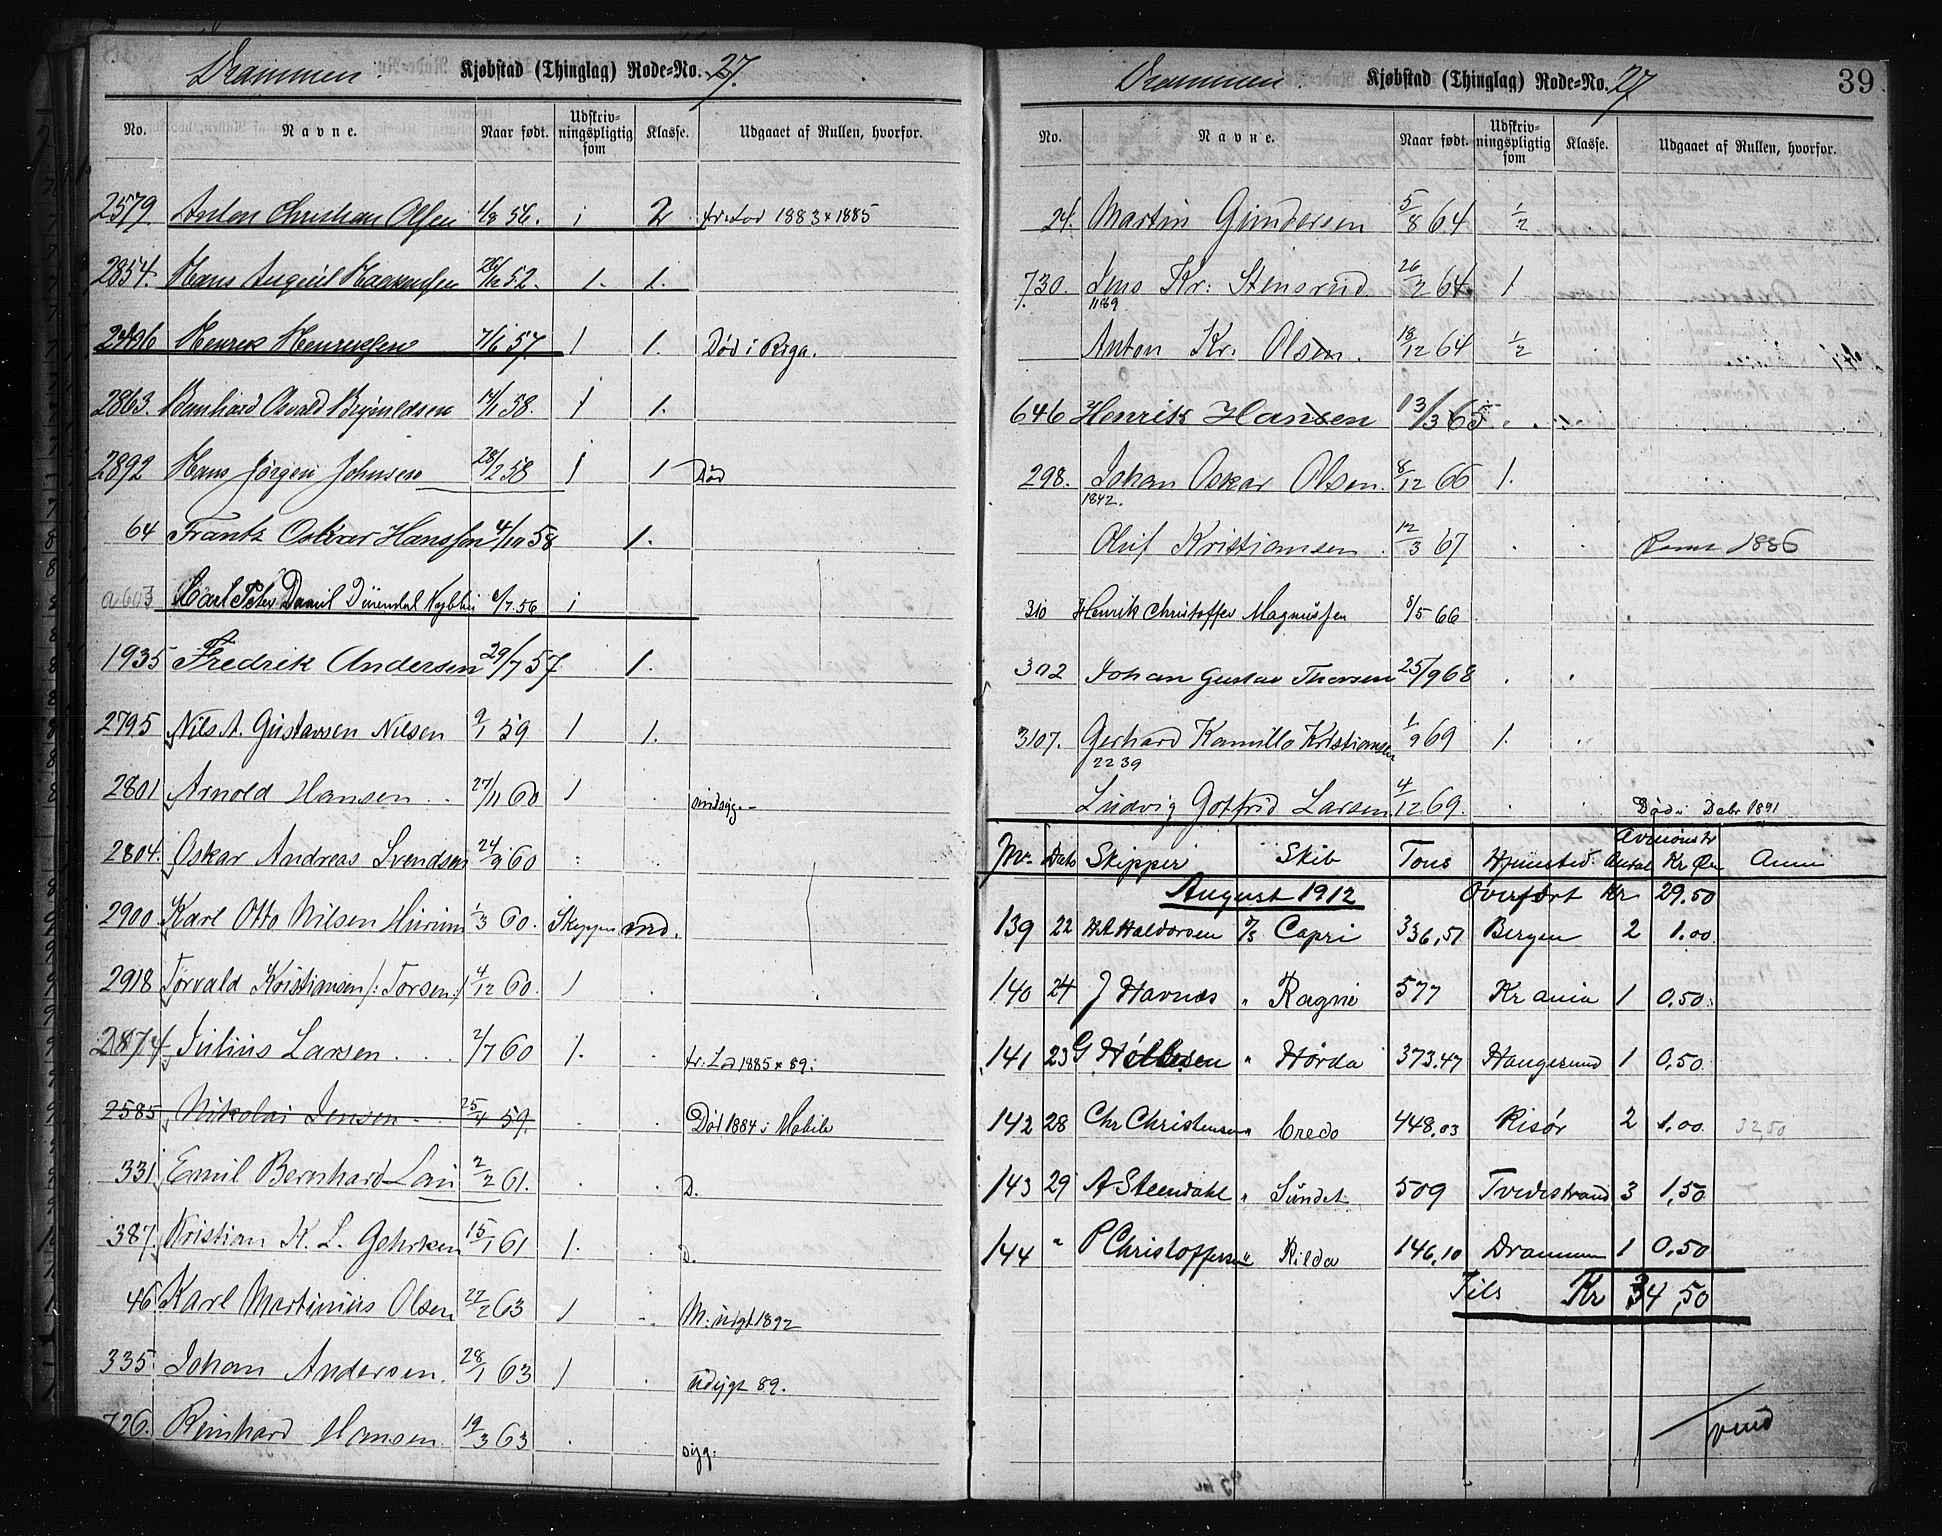 Drammen. Kjøbstad (Thinglag) Rode-No. 27.
No. Navne. Naar født. Udskrivningspligtig som Klasse. Udgaaet af Rullen, hvorfor.
2579. Anton Christian Olsen 1/8 56. 1 2
2854. Hans August 52. 1. 1.
Henrik Henriksen 7/6 57 1 1. Død i Riga.
2863. Bernhard Osvald 58. 1 1.
2892 Hans Jørgen Johnsen 28/2 58 1 1 Død
64 Frantz Oskar Hanssen 4/10 58 1.
a 603 Karl Peter Daniel 7 56 1
1935 Fredrik Andersen 29/7 57. 1.
2795 Nils A. Gustavsen Nilsen 9/1 59 1 1.
2801 Arnold Hansen . . 27/11 60 1
2804. Oskar Andreas Svendsen 24/9 60
2900. Karl Otto Nilsen 1/3 60. Skipper
2918 Torvald Kristiansen /: Torsen :/ 4/12 60. 1
2874 Julius Larsen . . . 2/7 60 1. 1885 89.
2585 Nikolai Jensen . . 25/4 59. Død 1884 i Mobile
331 Emil Bernhard Lau 2/2 61. D.
387. Kristian K. L. Gehrken 15/1 61 1. D.
46. Karl Martinius Olsen 22/2 63 1 M. udgt 1892
335. Johan Andersen. 28/1 63 1 udygt 89.
726. Reinhard Hansen 19/3 63 syg.
Drammen. Kjøbstad (Thinglag) Rode-No. 27 39
No. Navne. Naar født. Udskrivningspligtig som Klasse. Udgaaet af Rullen, hvorfor.
24. Martin Gundersen 5/8 64 1/2
730. Jens Kr: Stensrud 26/2 64 1
1189
Anton Kr. Olsen. 18/12 64 1/2
646 Henrik Hansen 13/3 65
298. Johan Oskar Olsen. 8/12 66 1.
1842.
Oluf Kristiansen 12/3 67 1886
310 Henrik Christoffer Magnussen 8/5 66
302 Johan Gustav Thorsen 25/9 68
3107. Gerhard Kamillo Kristiansen 1/9 69 1.
2239
Ludvig Gotfrid Larsen 4/12 69. Død i Debr 1891
Nr. Dato Skipper Skib Tons Hjemsted. Antal Kr Øre Anm
August 1912 Overført Kr 29.50
139 22 H A Haldorsen D/S Capri 336,51 Bergen 2 1.00
140 24 J Havnås " Ragni 577 Kr ania 1 0,50.
141 23 G " Hørda 373.47 Haugesund 1 0,50
142 28 Chr Christensen " Credo 448.03 Risør 2 1.00 32,50
143 29 A Steendahl " Sundet 509 Tvedestrand 3 1,50
144 " P Christoffersen " Kilda 146,10 Drammen 1 0,50
Tils Kr 34,50
vend